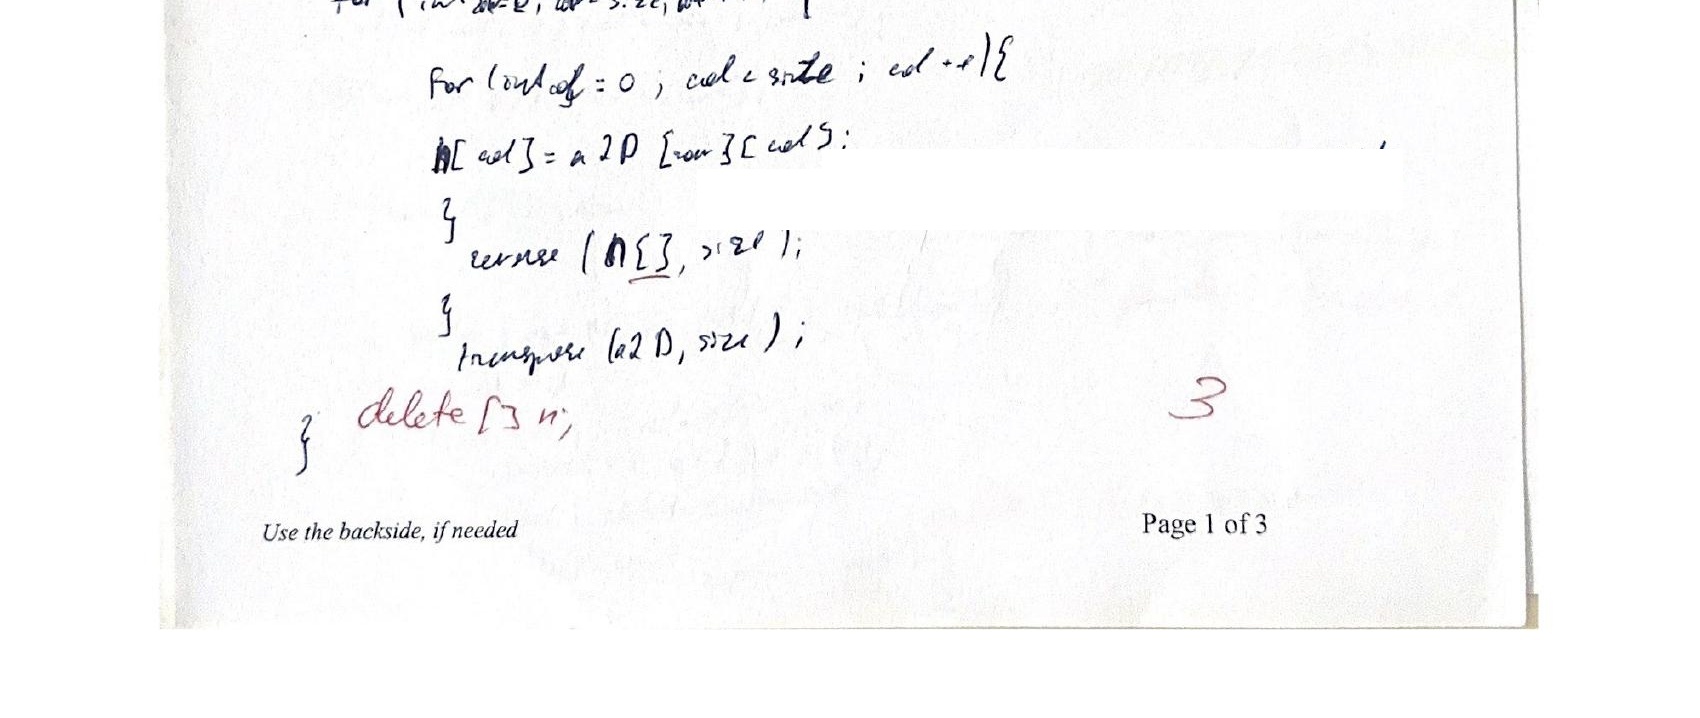 for (int
for (int col = 0 ; col < size ; col ++){
n[ col ] = a2D [row][ col ];
}
reverse (n[], size );
}
transpose (a2D, size ) ;
delete [] n; 3
}
Use the backside, if needed Page 1 of 3